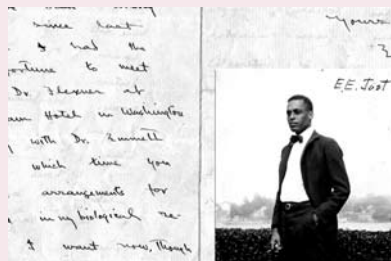 since last
I had the
fortune to meet
Dr. Flexner at
Hotel in Washington
with Dr. Emmett
which time you
arrangements for
in my biological re-
I want now, though
Yours
E.E. Just